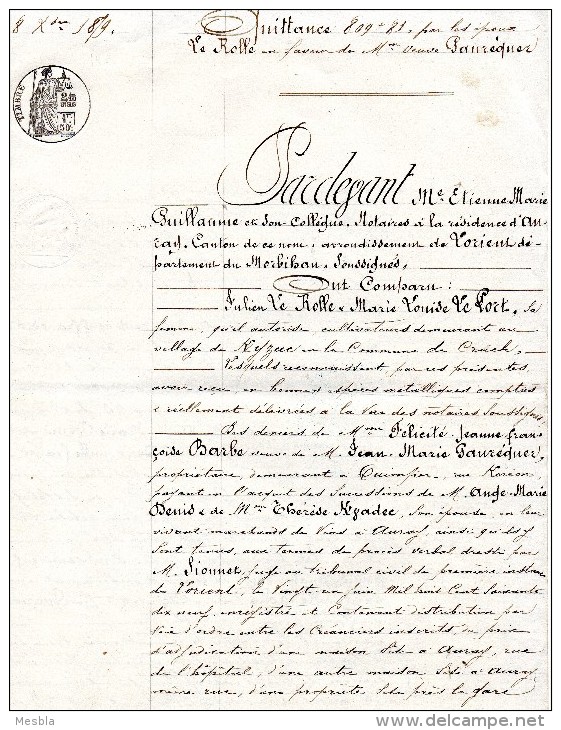 8 Xbre 1879.
Quittance 809f 81, par les époux
Le Rolle en faveur de Mme veuve Gauréquer
TIMBRE
Pardevant Me. Etienne Marie
Guillaume et son Collègue, Notaires à la résidence d'Au-
ray, Canton de ce nom, arrondissement de Lorient dé-
partement du Morbihan, Soussignés,
Ont Comparu:
Julien Le Rolle & Marie Louise Le Port, sa
femme, qu'il autorise, cultivateurs demeurant au
village de Kyzuc en la Commune de Crach.
Lesquels reconnaissent, par ces présentes,
avoir reçu, en bonnes espèces métalliques comptées
& réellement délivrées à la vue des notaires soussignés,
Des deniers de Mme Félicité Jeanne Fran-
çoise Barbe veuve de M. Jean Marie Gauréquer,
propriétaire, demeurant à Quimper, rue
payant en l'acquit des Successions de M. Ange Marie
Denis & de Mme Thérèse Kyadec, son épouse, en leur
vivant marchands de Vins à Auray, ainsi qu'ils y
sont tenus, aux termes du procès verbal dressé par
M. Sionnet, juge au tribunal civil de première instance
de Lorient, le Vingt un juin Mil huit Cent Soixante
dix neuf, enregistré & Contenant distribution par
Voie d'ordre entre les Créanciers inscrits, du prix
d'adjudication d'une maison Sise à Auray, rue
de l'hôpital, d'une autre maison Sise à Auray
même rue, d'une propriété Sise près la gare
Mesbla
delcampe.net